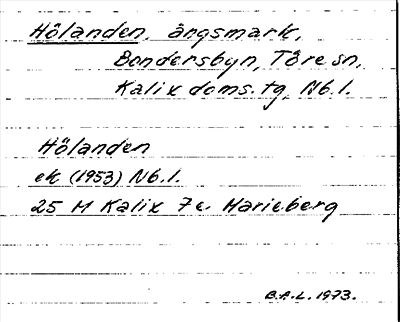 Hölanden, ängsmark,
Bondersbyn, Töre sn,
Kalix doms. tg, Nb. l.
Hölanden
ek (1953) Nb. l.
25 M Kalix 7e Marieberg
B.A.L. 1973.